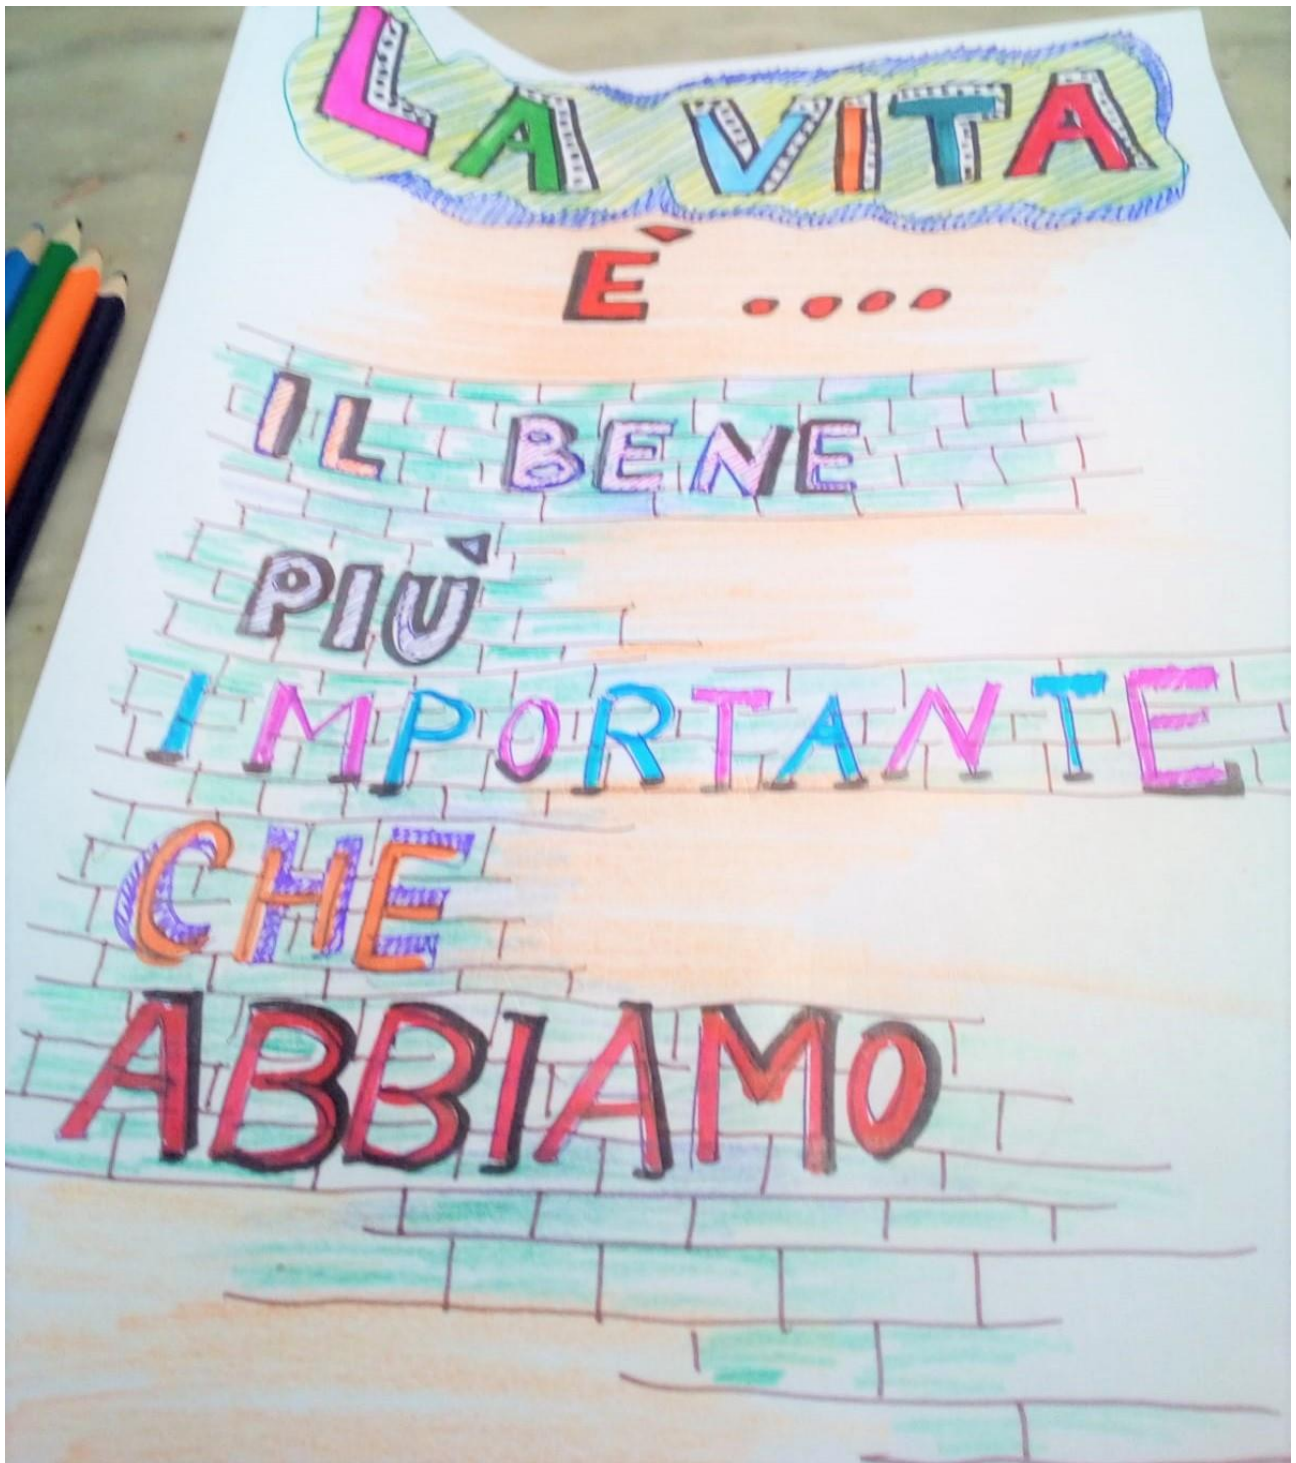 LA VITA
È ....
IL BENE
PIÙ
IMPORTANTE
CHE
ABBIAMO